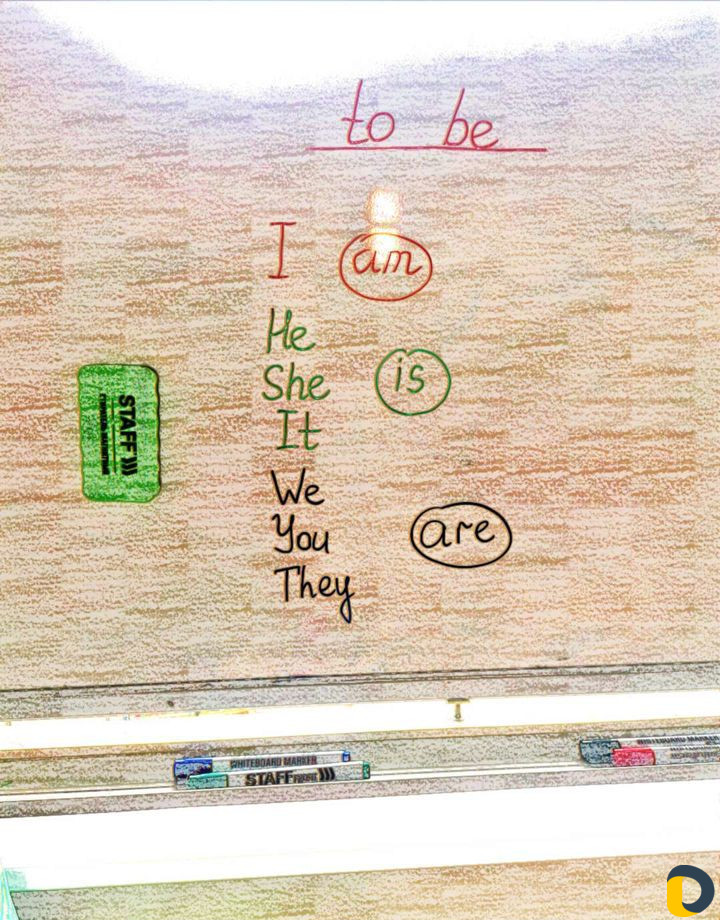 to be
I am
He
She is
It
We
You are
They
STAFF
WHITEBOARD MARKER
STAFF
WHITEBOARD MARKER